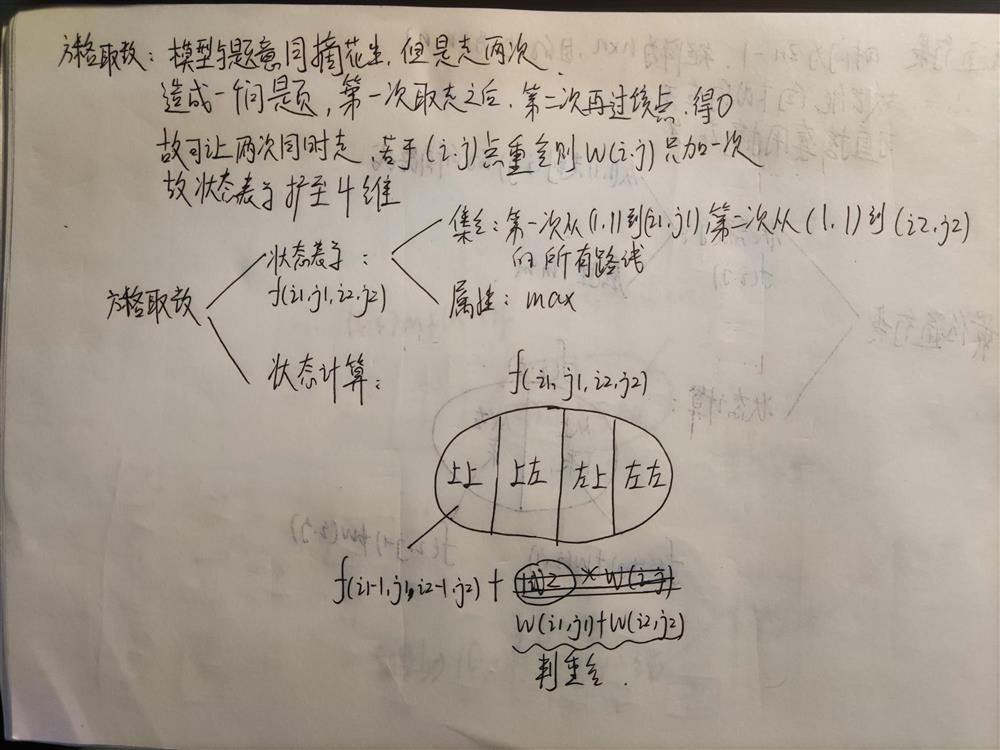 方格取数：模型与题意同摘花生，但是走两次.
造成一个问题，第一次取走之后，第二次再过该点，得0
故可让两次同时走，若于(i,j)点重合则W(i,j)只加一次
故状态表示扩至4维
集合：第一次从(1,1)到(i1,j1),第二次从(1,1)到(i2,j2)
的所有路线
状态表示：
f(i1,j1,i2,j2)
属性：max
方格取数
状态计算：
f(i1,j1,i2,j2)
上上 上左 左上 左左
f(i1-1,j1,i2-1,j2) +
W(i1,j1)+W(i2,j2)
判重合.